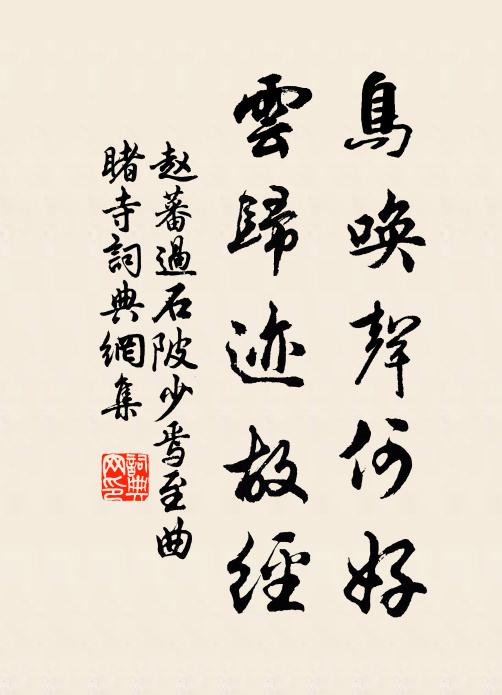 鳥喚聲何好
雲歸迹故經
赵蕃過石陂少焉至曲
睹寺詞典網集
詞典网印